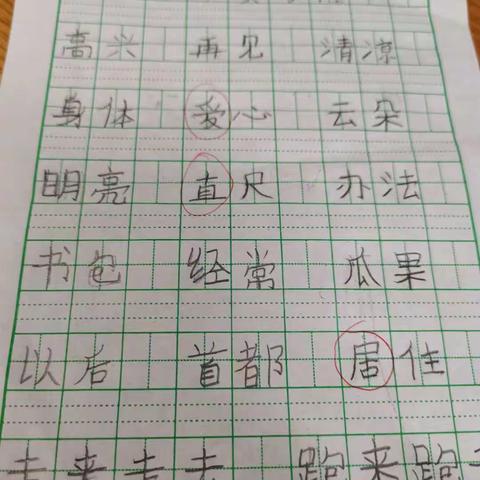 高兴 再见 清凉
身体 爱心 云朵
明亮 直尺 办法
书包 经常 瓜果
以后 首都 居住
走来走去 跑来跑